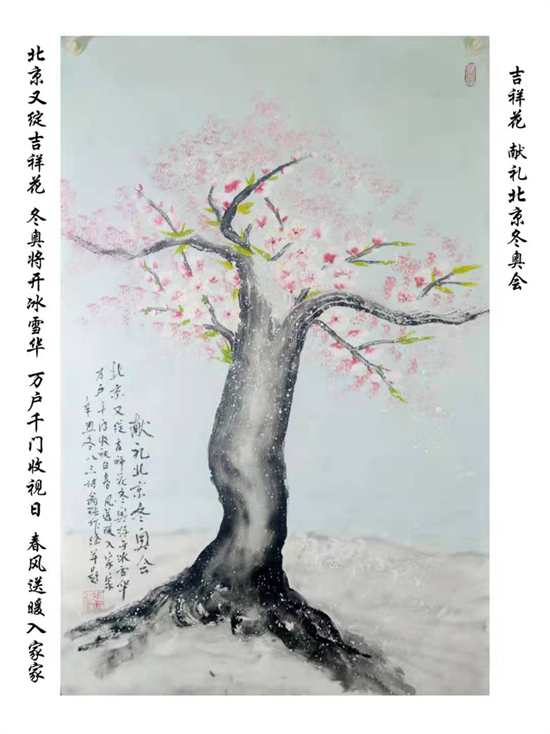 吉祥花 献礼北京冬奥会
献礼北京冬奥会
北京又绽吉祥花冬奥将开冰雪华
万户千门收视日春风送暖入家家
辛丑冬八三诗翁绘并题
北京又绽吉祥花 冬奥将开冰雪华 万户千门收视日 春风送暖入家家